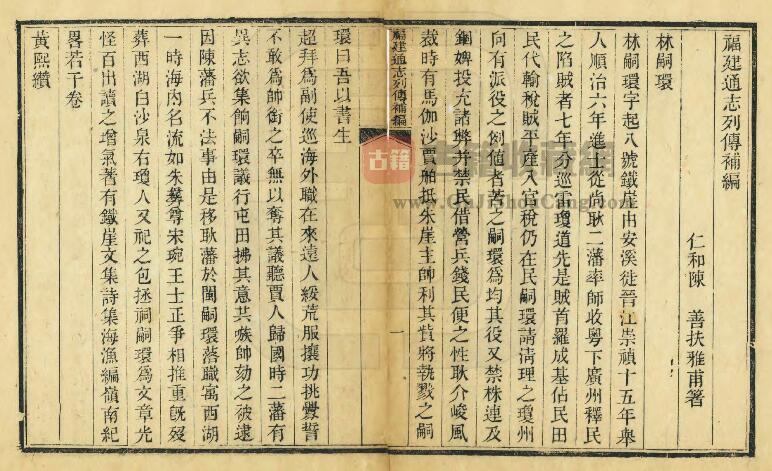 福建通志列傳補編
仁和陳　善扶雅甫箸
林嗣環
林嗣環字起八號鐵崖由安溪徙晉江崇禎十五年舉
人順治六年進士從尚耿二藩率師收粤下廣州釋民
之陷賊者七年分巡雷瓊道先是賊首羅成基佔民田
民代輸稅賊平產入官稅仍在民嗣環請淸理之瓊州
向有派役之例値者苦之嗣環爲均其役又禁株連及
錮婢投充諸弊并禁民借營兵錢民便之性耿介峻風
裁時有馬伽沙賈舶抵朱崖主帥利其貲將執戮之嗣
福建通志列傳補編
一
環曰吾以書生
超拜爲副使巡海外職在來遠人綏荒服攘功挑釁誓
不敢爲帥銜之卒無以奪其議聽賈人歸國時二藩有
異志欲集餉嗣環議行屯田拂其意共嗾帥劾之被逮
因陳藩兵不法事由是移耿藩於閩嗣環落職寓西湖
一時海内名流如朱彝尊宋琬王士正爭相推重旣歿
葬西湖白沙泉右瓊人又祀之包拯祠嗣環爲文章光
怪百出讀之增氣著有鐵崖文集詩集海漁編嶺南紀
畧若干卷
黃熙纘
古籍
www.GuJiShouCang.com